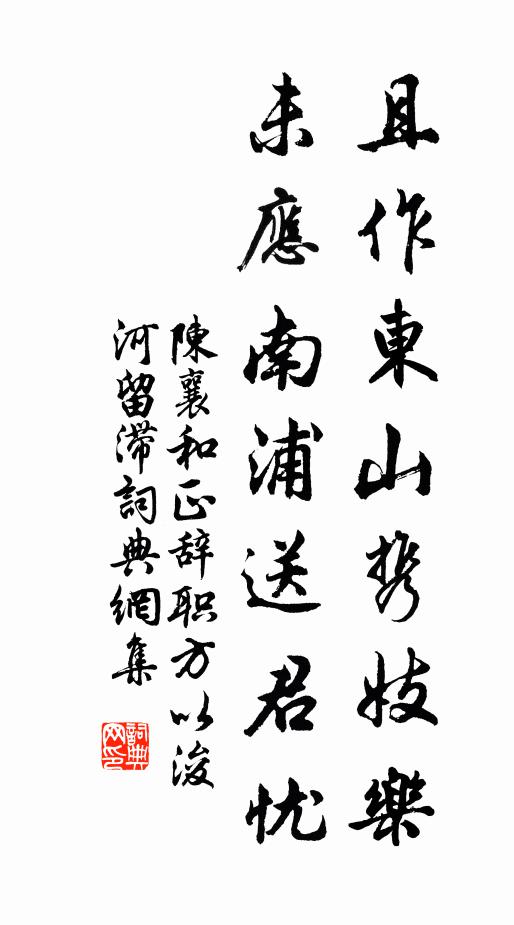 且作東山携妓樂
未應南浦送君忧
陳襄和正辞职方以浚
河留滞詞典網集
詞典
网印